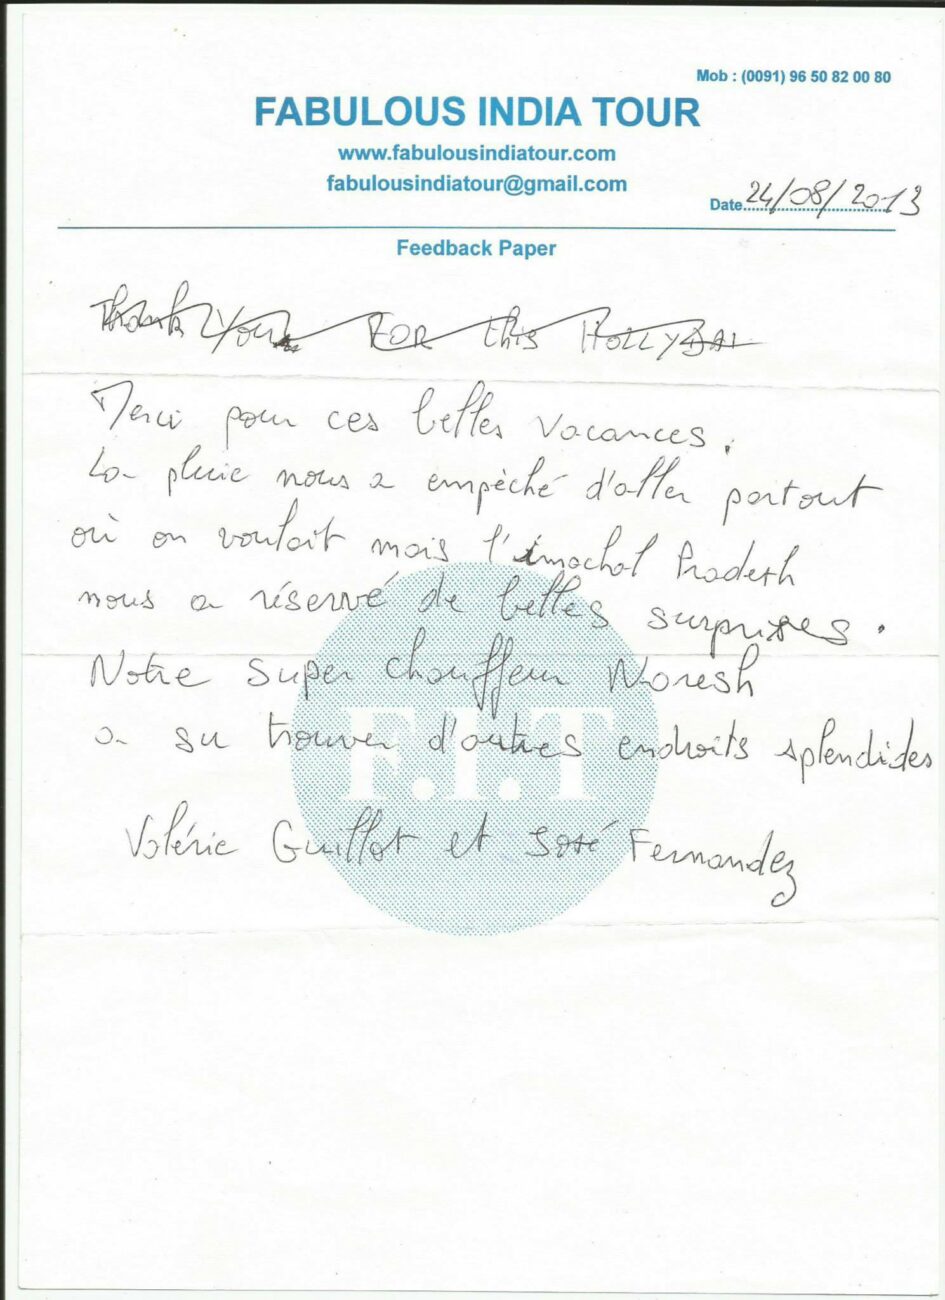 Mob : (0091) 96 50 82 00 80
FABULOUS INDIA TOUR
www.fabulousindiatour.com
fabulousindiatour@gmail.com
Date 24/08/2013
Feedback Paper
Thank You FOR this HOLLYDAI
Merci pour ces belles vacances.
La pluie nous a empêché d'aller partout
où on voulait mais l'imachal Pradesh
nous a réservé de belles surprises.
Notre super chauffeur Noresh
a su trouver d'autres endroits splendides
F.I.T
Valérie Guillot et José Fernandez